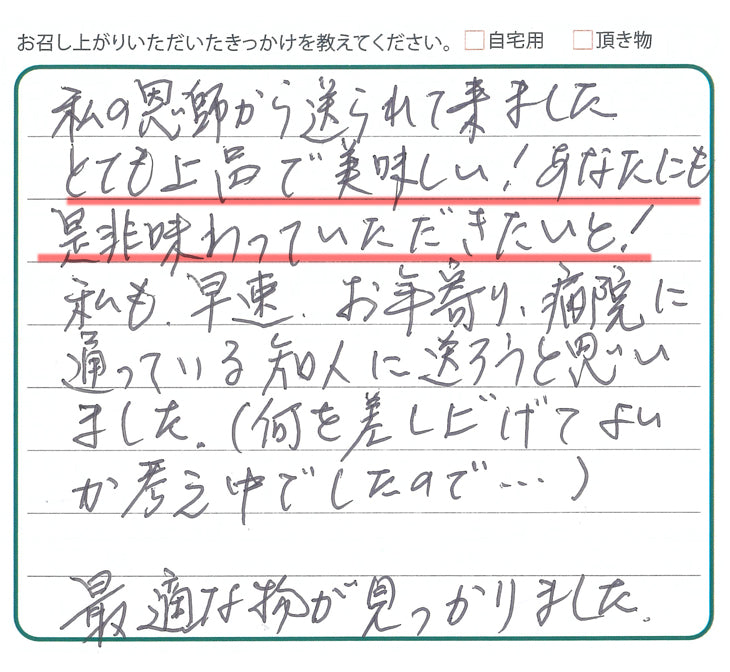 お召し上がりいただいたきっかけを教えてください。 □自宅用 □頂き物
私の恩師から送られて来ました
とても上品で美味しい!あなたにも
是非味わっていただきたいと!
私も、早速、お年寄り、病院に
通っている知人に送ろうと思い
ました。(何を差し上げてよい
か考え中でしたので…)
最適な物が見つかりました。